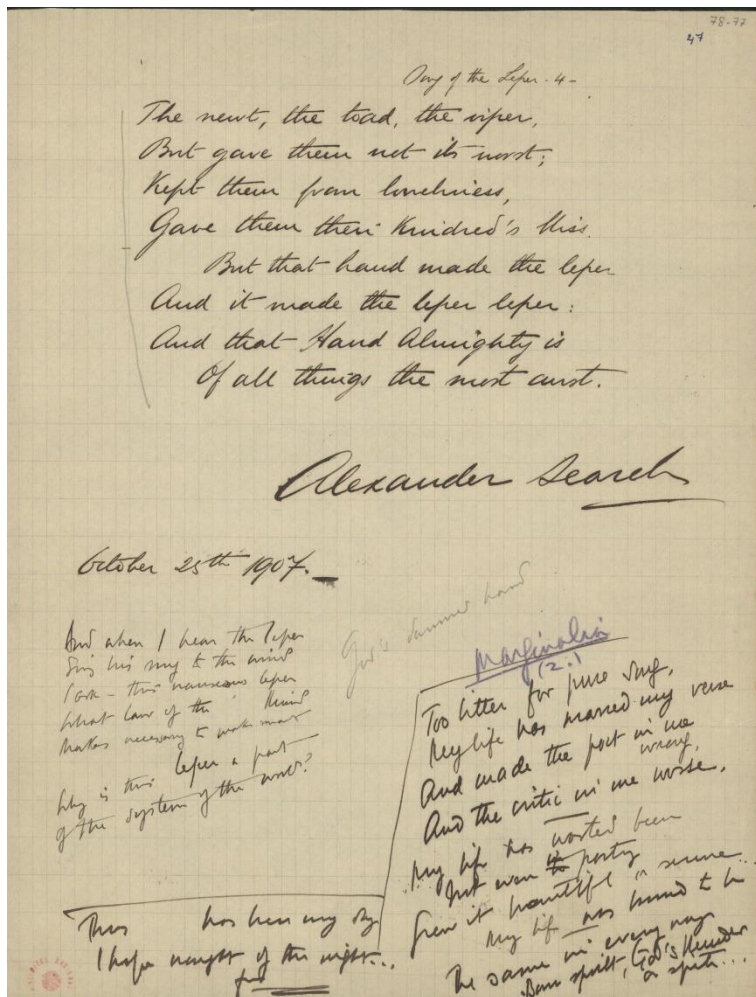 78-77
47
Song of the Leper - 4 -
The newt, the toad, the viper,
But gave them not its worst;
Kept them from loneliness,
Gave them their kindred's bliss.
But that hand made the leper
And it made the leper leper:
And that Hand Almighty is
Of all things the most curst.
Alexander Search
October 25th 1907.
God's damned hand
And when I hear the leper
Sing his song to the wind
I ask - this nauseous leper
What law of the mind
Makes necessary to
Why is this leper a part
of the system of the world?
Marginalia
(2.)
Too bitter for pure song,
My life has marred my verse
And made the poet in me
wrong,
And the critic in me worse.
My life has wasted been
Not even poetry
Grew it beautiful
My life was bound to be
The same in every way
Thus has been my day
I hope naught of the night...